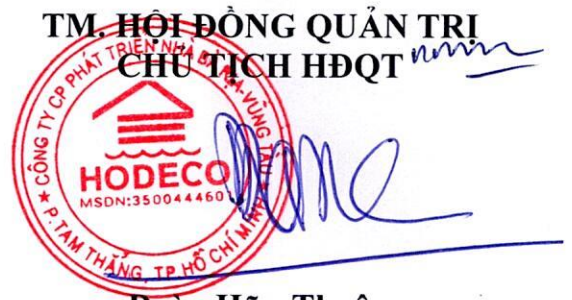 TM. HỘI ĐỒNG QUẢN TRỊ
CHỦ TỊCH HĐQT
CÔNG TY CP PHÁT TRIỂN NHÀ BÀ RỊA-VŨNG TÀU
HODECO
MSDN:350044460
★ P.TAM THẮNG, TP HỒ CHÍ MINH